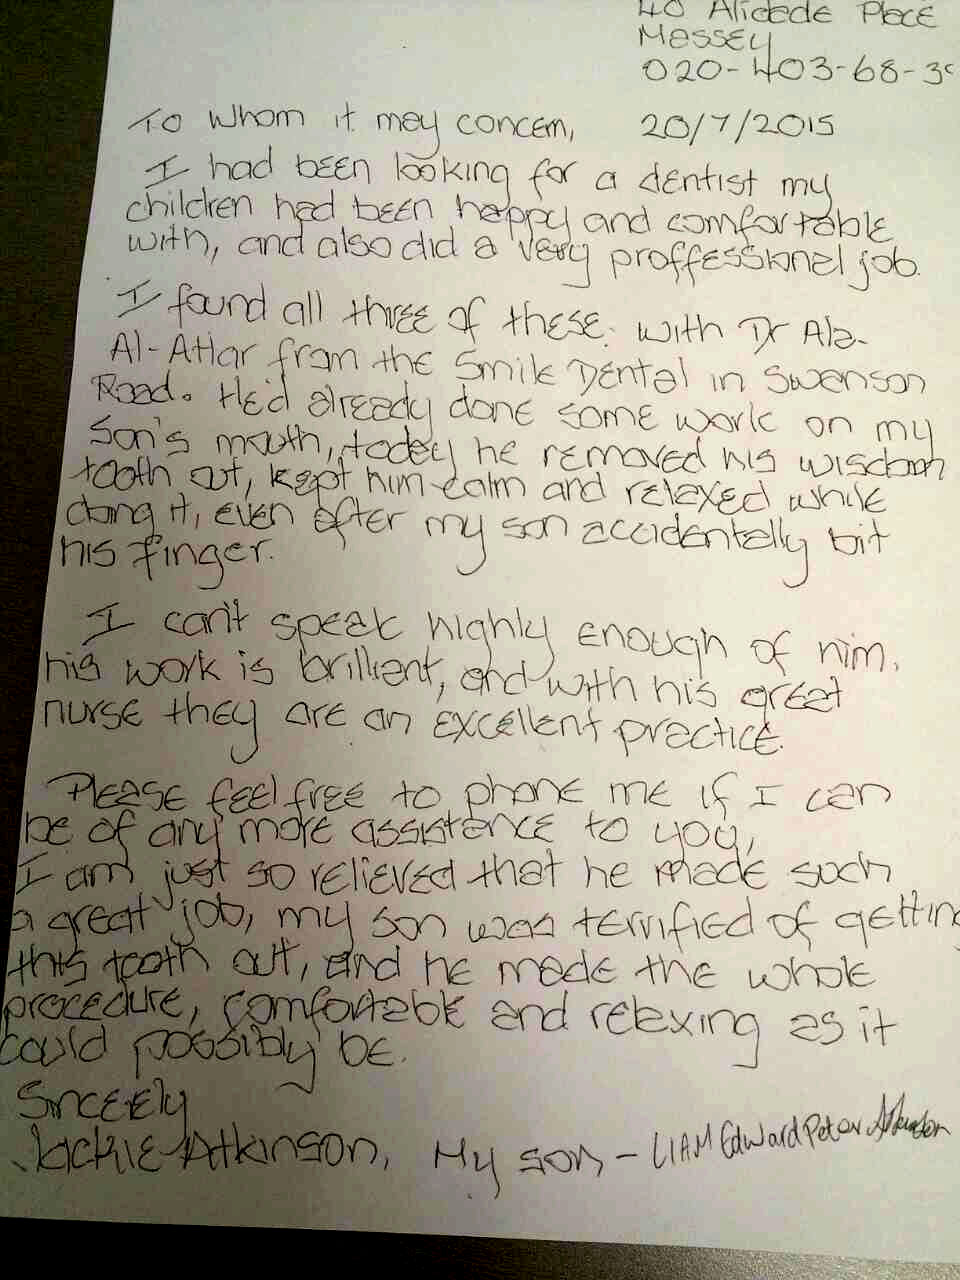 40 Alidade Place
Massey
020-403-68-39
To whom it may concern, 20/7/2015
I had been looking for a dentist my
children had been happy and comfortable
with, and also did a very proffessional job.
I found all three of these. with Dr Ala-
Al-Attar from the Smile Dental in Swanson
Road. He'd already done some work on my
Son's mouth, today he removed his wisdom
tooth out, kept him calm and relaxed while
doing it, even after my son accidentally bit
his finger.
I can't speak highly enough of him,
his work is brillient, and with his great
nurse they are an excellent practice.
Please feel free to phone me if I can
be of any more assistance to you,
I am just so relieved that he made such
a great job, my son was terrified of getting
this tooth out, and he made the whole
procedure, comfortable and relaxing as it
could possibly be.
Sinceely
Jackie Atkinson, My son - LIAM Edward Peter Atkinson